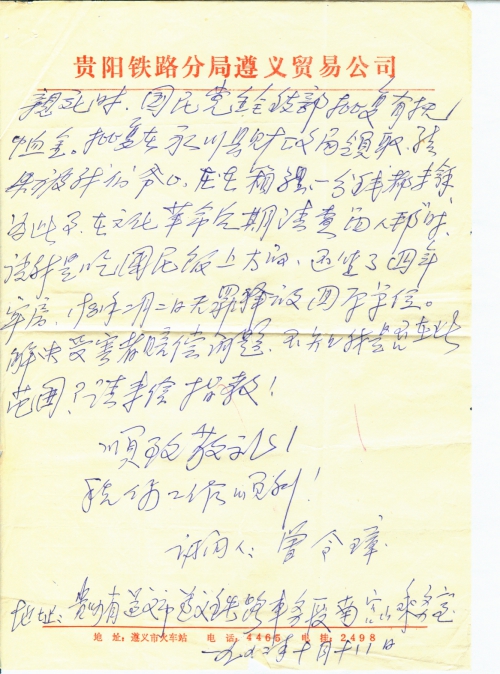 贵阳铁路分局遵义贸易公司
亲死时，国民党主会政部批复有抚
恤金。批复在永川县财政局领取，结
果被我们爷爷压在箱里，一分钱都未拿
为此事，在文化革命后期清黄同人邦时，
说我是吃国民饭上方的，还坐了四年
年房，年二月二日无罪释放回原单位。
解决受害者赔偿问题，不知我是否在此
范围？请来信指教！
顺致敬礼！
祝你工作顺利！
询问人：曾令璋
地址：贵州省遵义市遵义铁路车务段南宫山乘务室
地 址：遵义市火车站 电 话：4466 电 挂：2498
一九九二年十月十八日